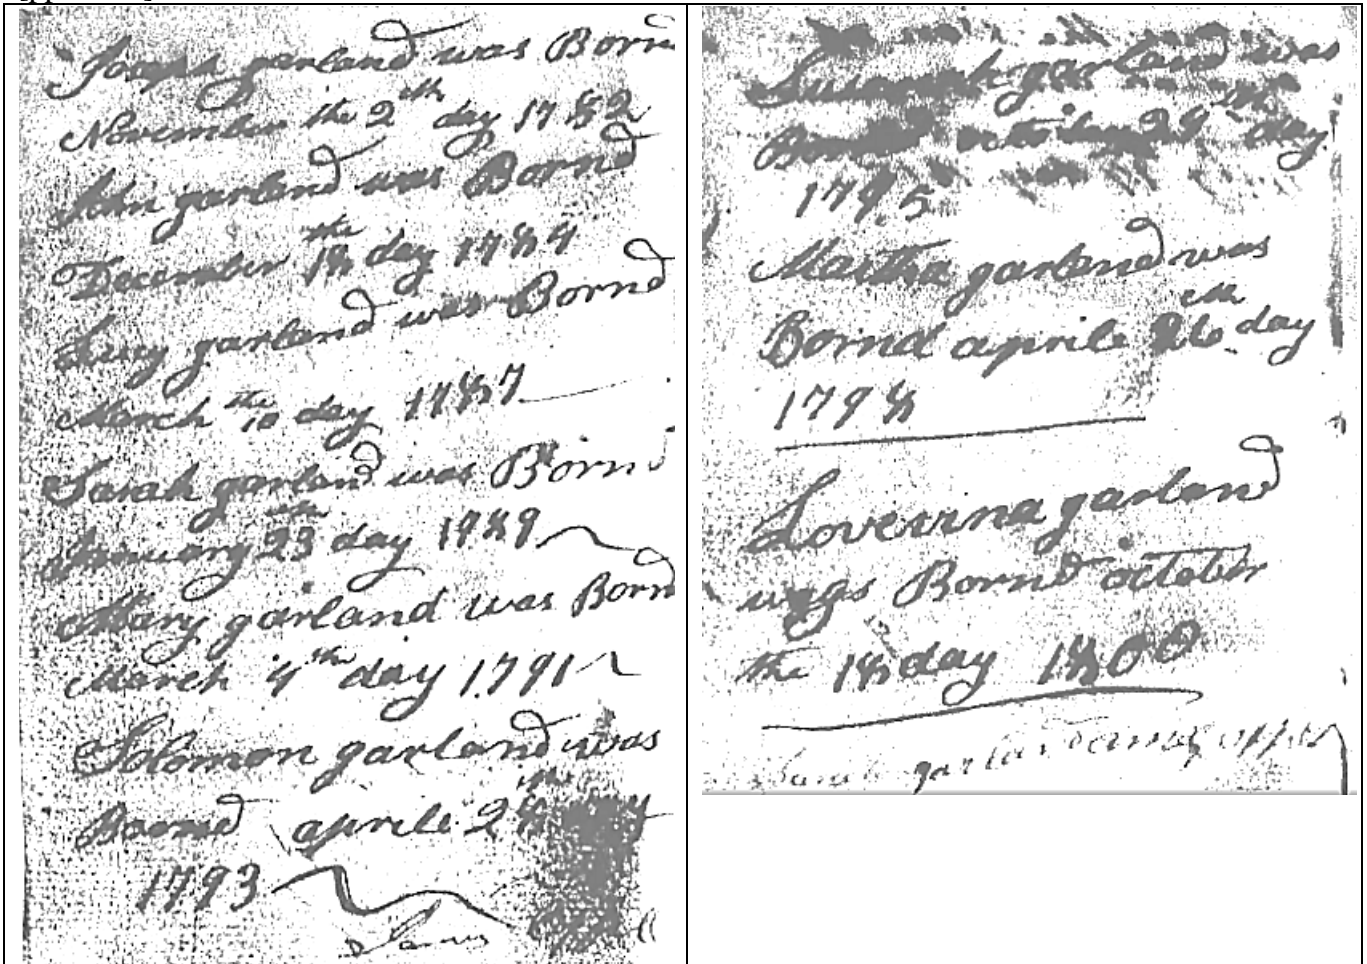 Joseph garland was Born
November the 2th day 1782
John garland was Bornd
December the 18 day 1784
Lucy garland was Bornd
March the 10 day 1787
Sarah garland was Born
January the 23 day 1789
Mary garland was Born
March 4th day 1791
Solomon garland was
Bornd aprile 28
1793
Susanah garland was
29th day
1795
Martha garland was
Bornd aprile 26th day
1798
Loverina garland
was Bornd october
the 18 day 1800
garland